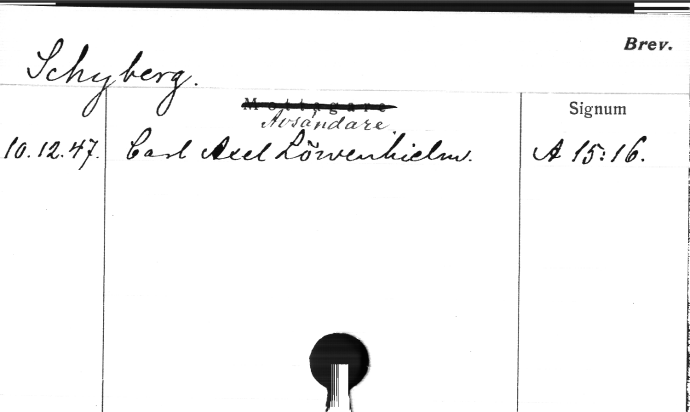 Brev.
Schyberg.
Mottagare
Avsändare.
Signum
10.12.47. Carl Axel Löwenhielm. A 15:16.